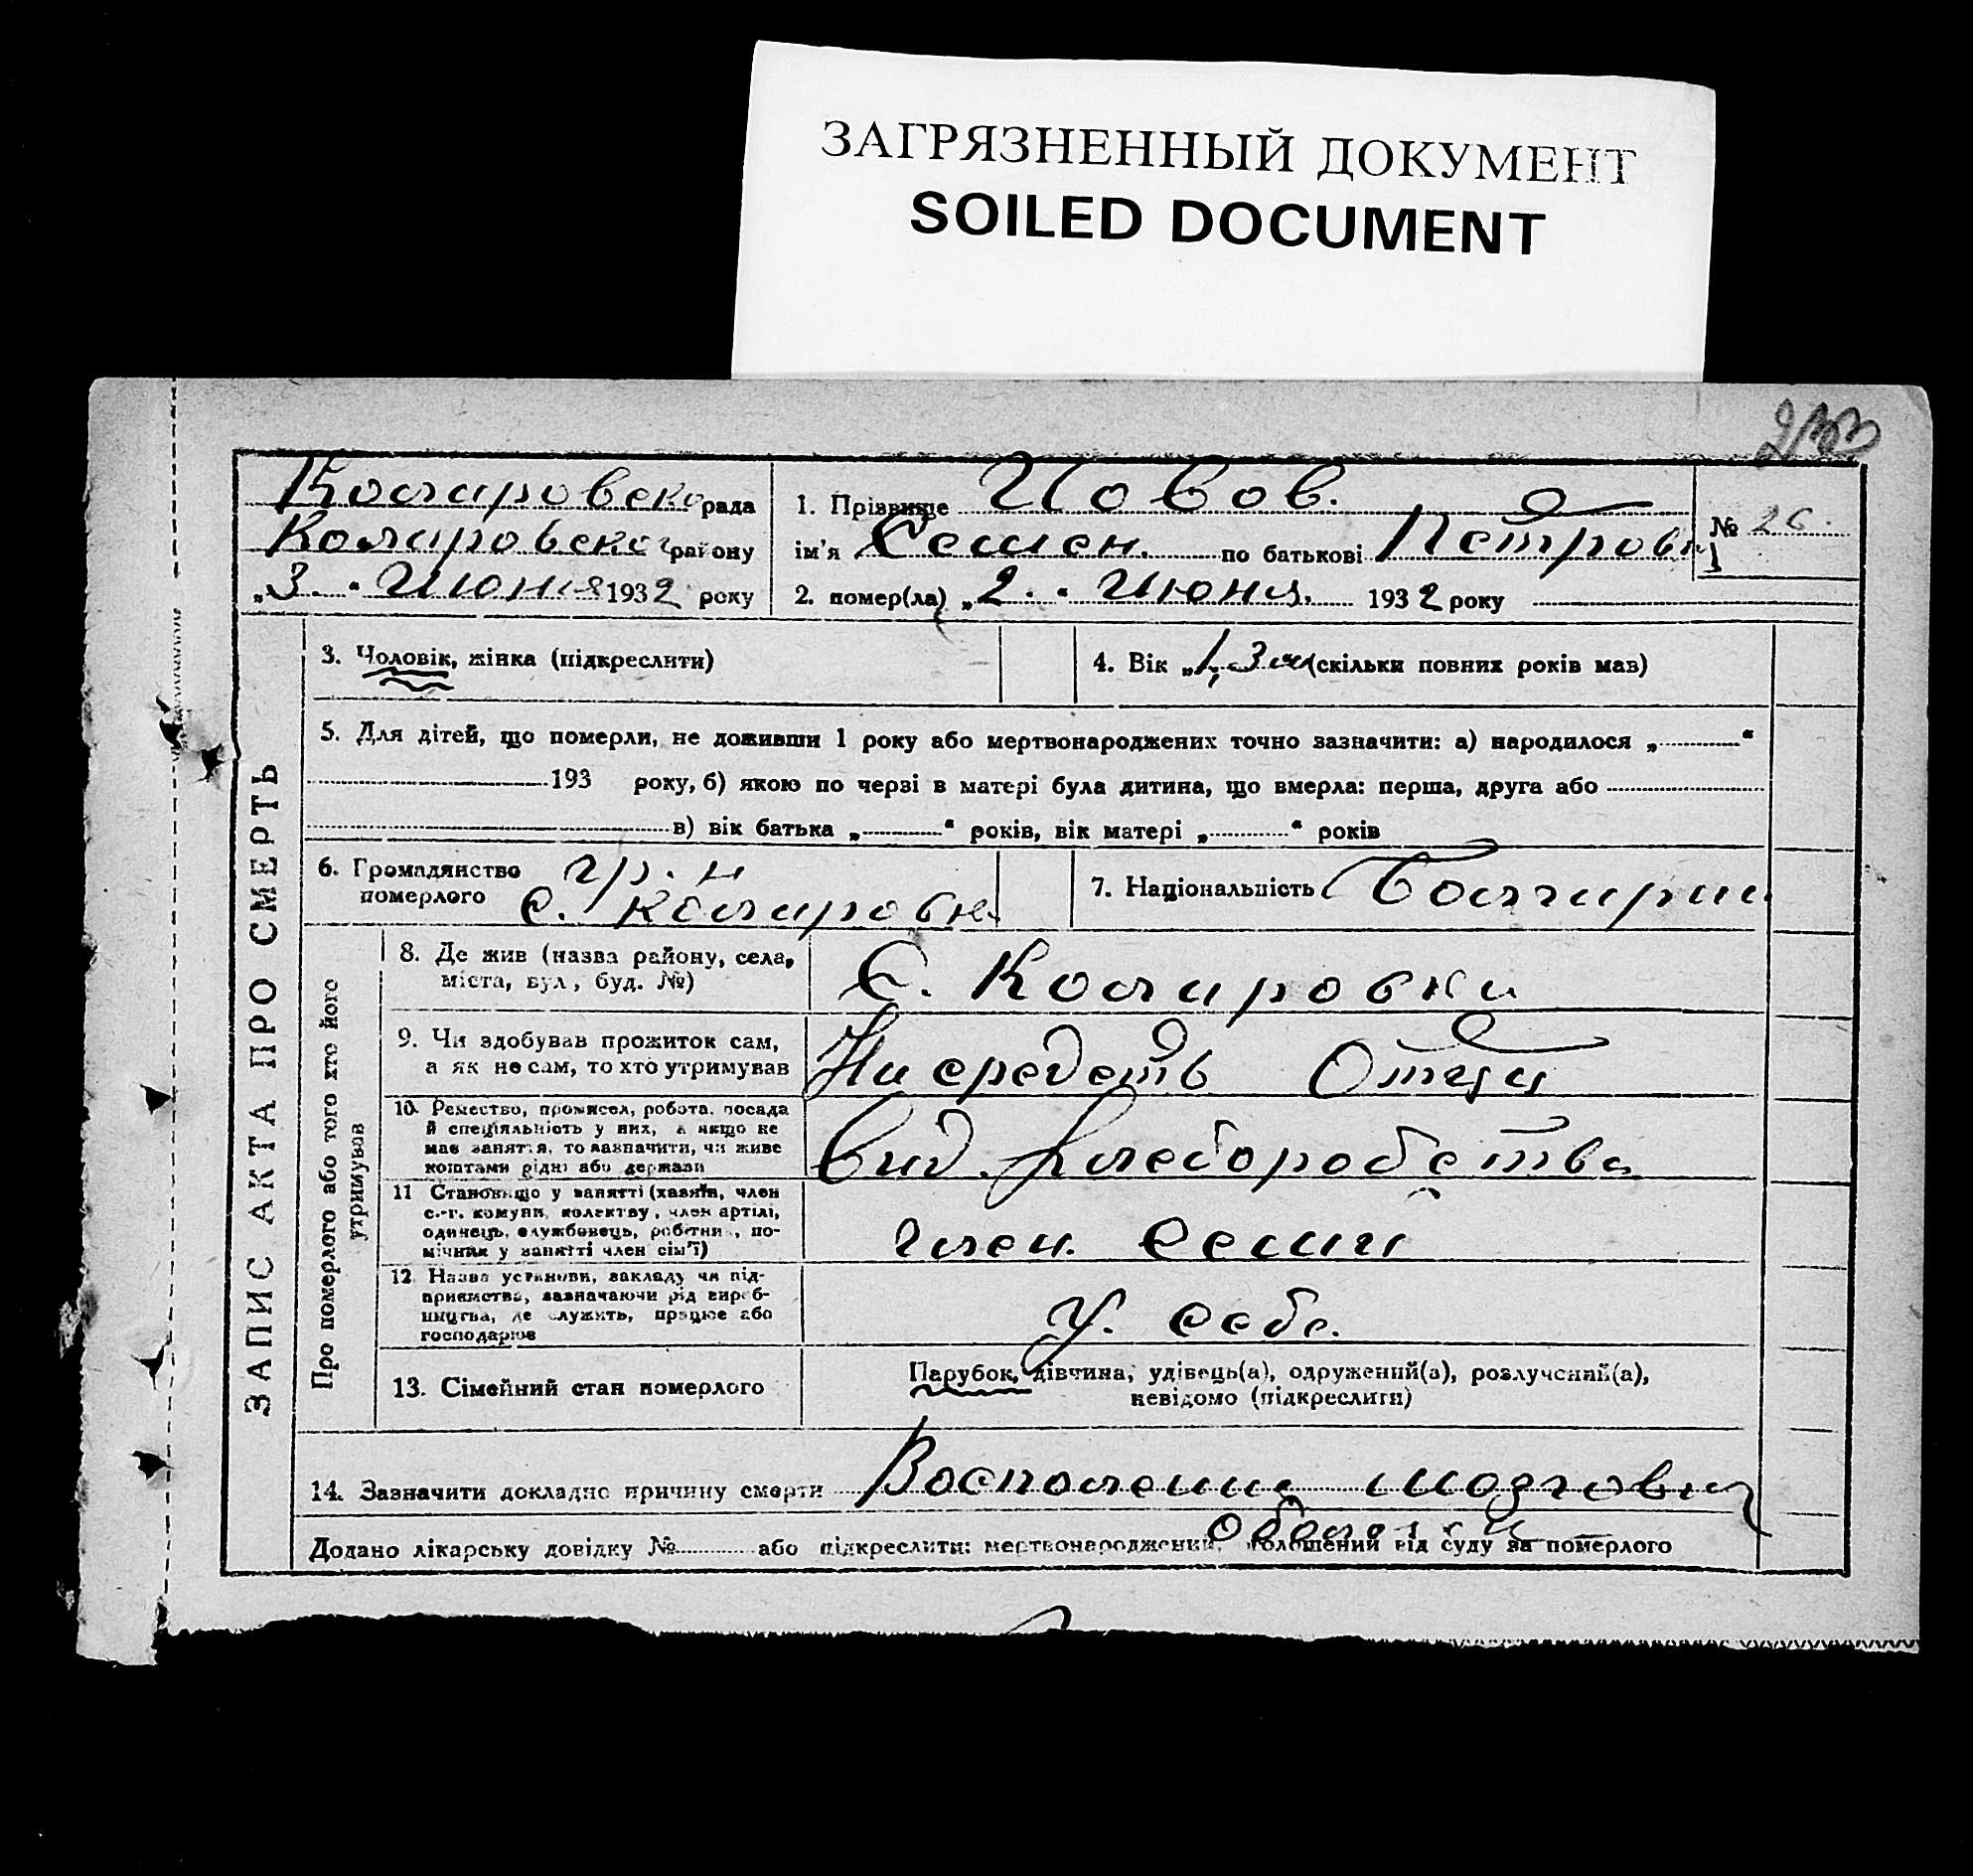 ЗАГРЯЗНЕННЫЙ ДОКУМЕНТ
SOILED DOCUMENT
233
Коларовско рада
Коларовског району
„3 . Июня 1932 року
1. Прізвище Иовов.
ім'я Семен. по батькові Петрови
2. помер(ла) „2 . Июня. 1932 року
№ 26.
ЗАПИС АКТА ПРО СМЕРТЬ
3. Чоловік, жінка (підкреслити)
4. Вік „1, 3 м (скільки повних років мав)
5. Для дітей, що померли, не доживши 1 року або мертвонароджених точно зазначити: а) народилося „ “
193 року, б) якою по черзі в матері була дитина, що вмерла: перша, друга або
в) вік батька „ “ років, вік матері „ “ років
6. Громадянство померлого гр. н
с. Коларовк.
7. Національність Болгарин
Про померлого або того хто його утримував
8. Де жив (назва району, села, міста, вул, буд. №)
С. Коларовка
9. Чи здобував прожиток сам, а як не сам, то хто утримував
На средств Отца
10. Ремество, промисел, робота, посада й спеціяльність у них, а якщо не має заняття, то зазначити, чи живе коштами рідні або держави
від. хлеборобства
11 Становище у занятті (хазяїн, член с.-г. комуни, колективу, член артілі, одинець, службовець, робітник, помічник у занятті член сім'ї)
член. семи
12. Назва установи, закладу чи підприємства, зазначаючи рід виробництва, де служить, працює або господарює
У. себе.
13. Сімейний стан померлого
Парубок, дівчина, удівець(а), одружений(а), розлучений(а),
невідомо (підкреслити)
14. Зазначити докладно причину смерти Воспаление мозговых
оболочки
Додано лікарську довідку № або підкреслити: мертвонароджений, оголошений від суду за померлого